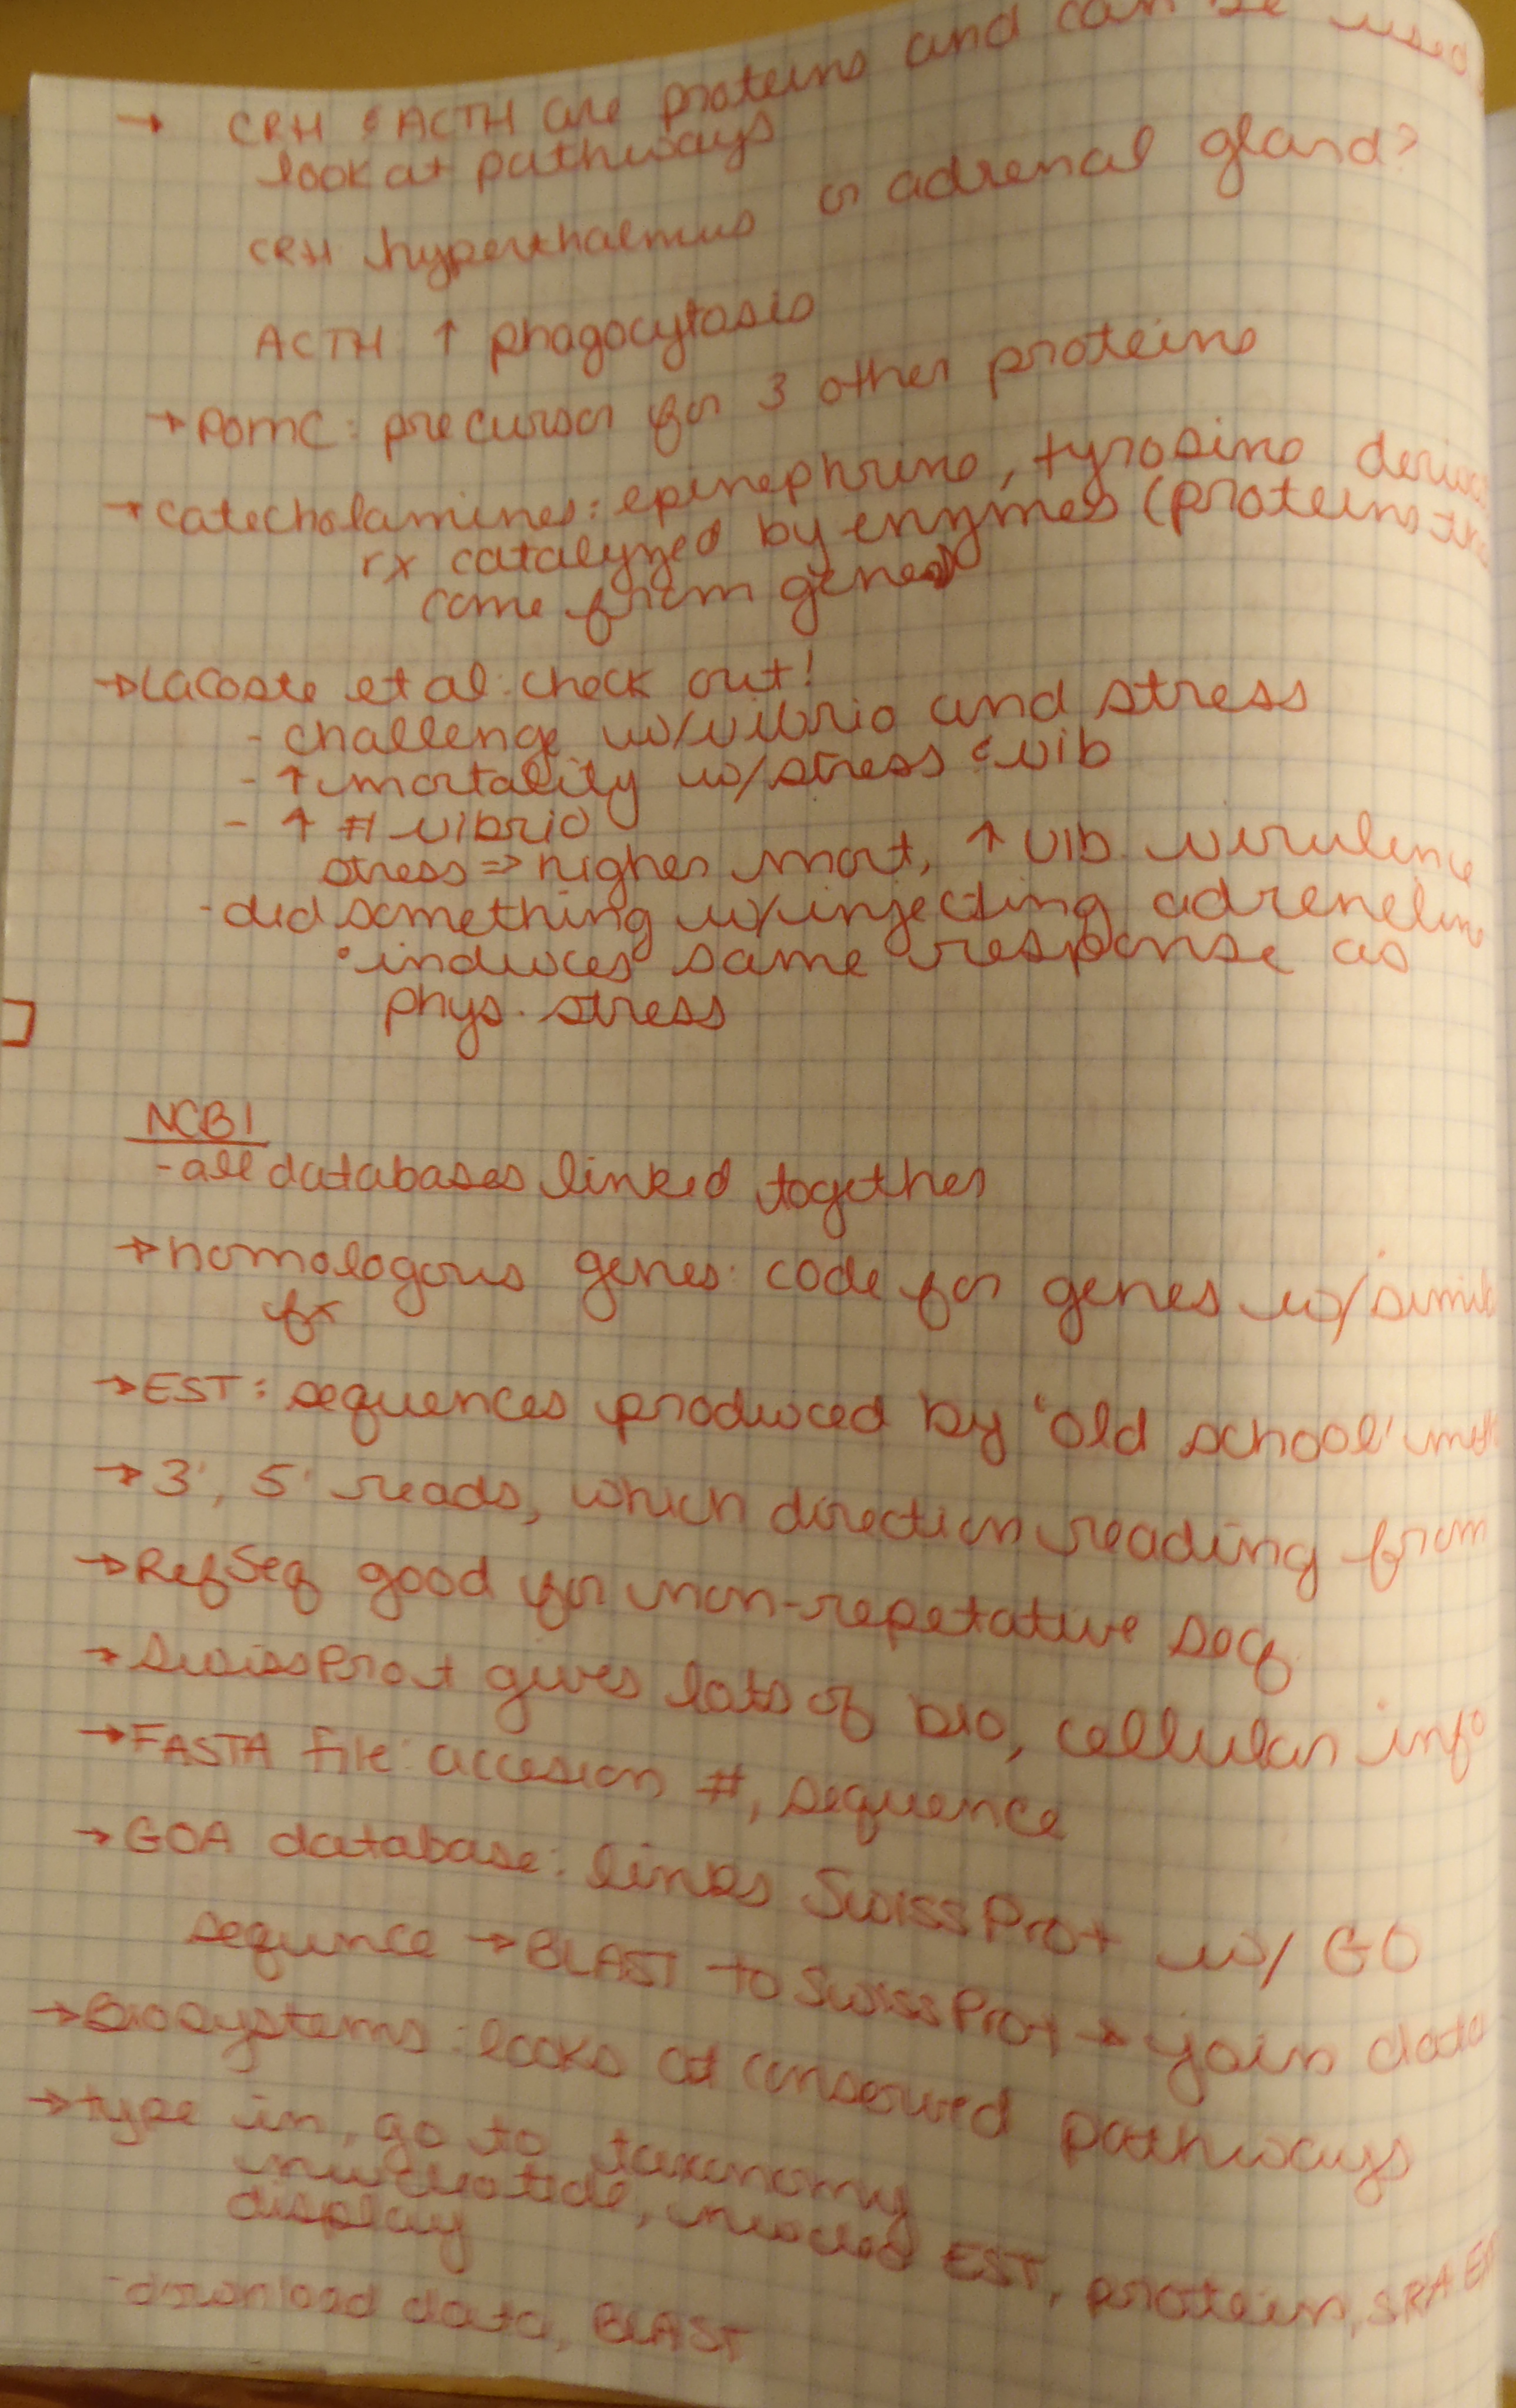 → CRH & ACTH are proteins and can be used
look at pathways
CRH hyperthalmus or adrenal gland?
ACTH ↑ phagocytosis
→ POMC: precursor for 3 other proteins
→ catecholamines: epinephrine, tyrosine
rx catalyzed by enzymes (proteins
come from genes
→ Lacoste et al. check out!
- challenge w/vibrio and stress
- ↑ mortality w/stress & vib
- ↑ # vibrio
stress ⇒ higher mort, ↑ vib. virulence
- did something w/injecting adreneline
• induces same response as
phys. stress
NCBI
- all databases linked together
→ homologous genes: code for genes w/
fx
→ EST: sequences produced by 'old school'
→ 3', 5' reads, which direction reading from
→ RefSeq good for non-repetative seq.
→ SwissProt gives lots of bio, cellular info
→ FASTA file: accesion #, sequence
→ GOA database: links SwissProt w/ GO
sequnce → BLAST to SwissProt → join data
→ Biosystems: looks at conserved pathways
→ type in, go to taxonomy
nucleotide, EST, protein, SRA
display
- download data, BLAST